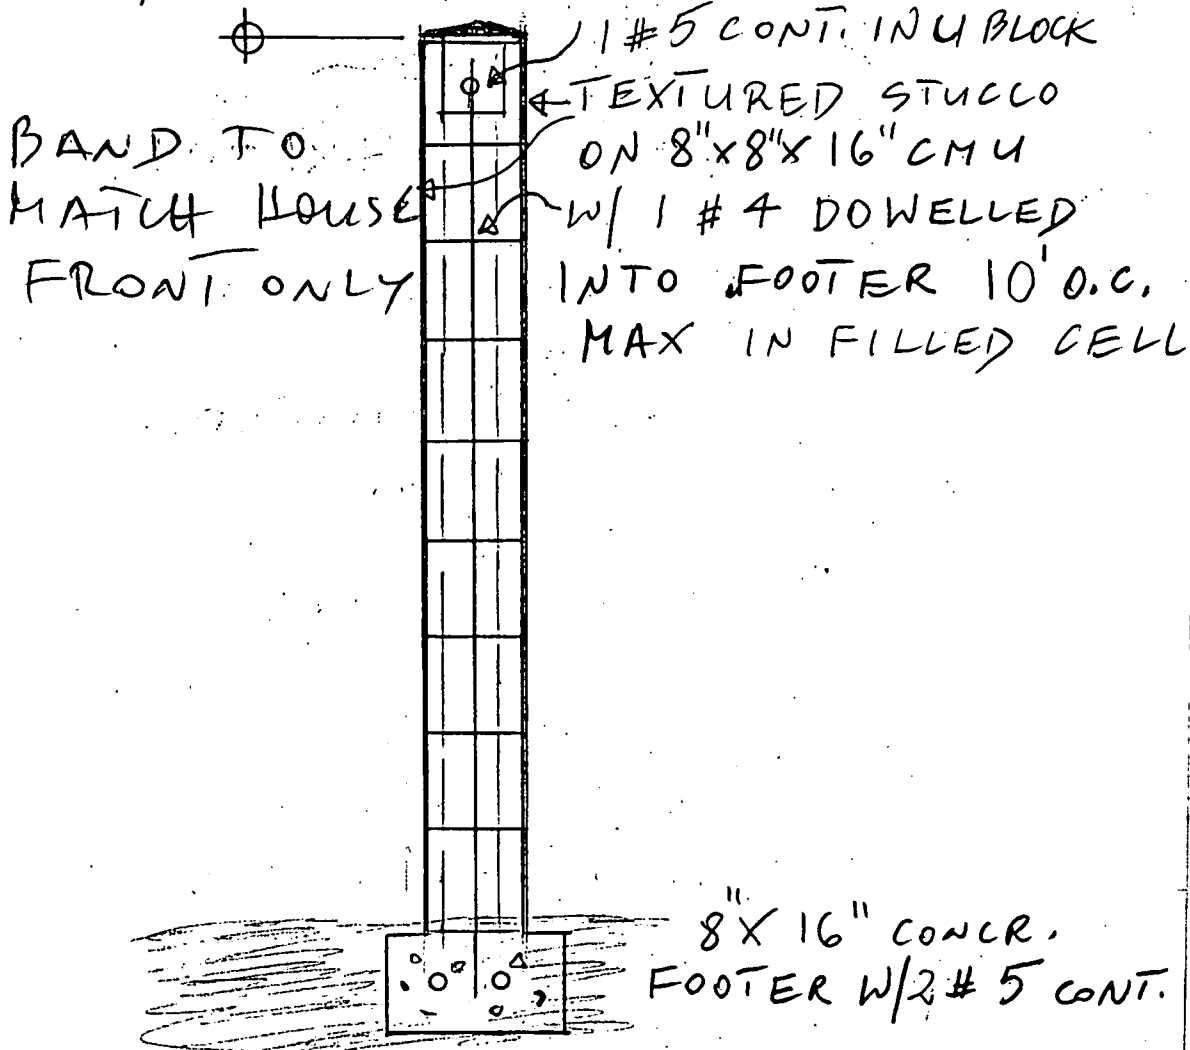 1 #5 CONT. IN U BLOCK
TEXTURED STUCCO
ON 8"x8"x16" CMU
W/ 1 #4 DOWELLED
INTO FOOTER 10' O.C.
MAX IN FILLED CELL
BAND TO
MATCH HOUSE
FRONT ONLY
8"X16" CONCR.
FOOTER W/2 #5 CONT.